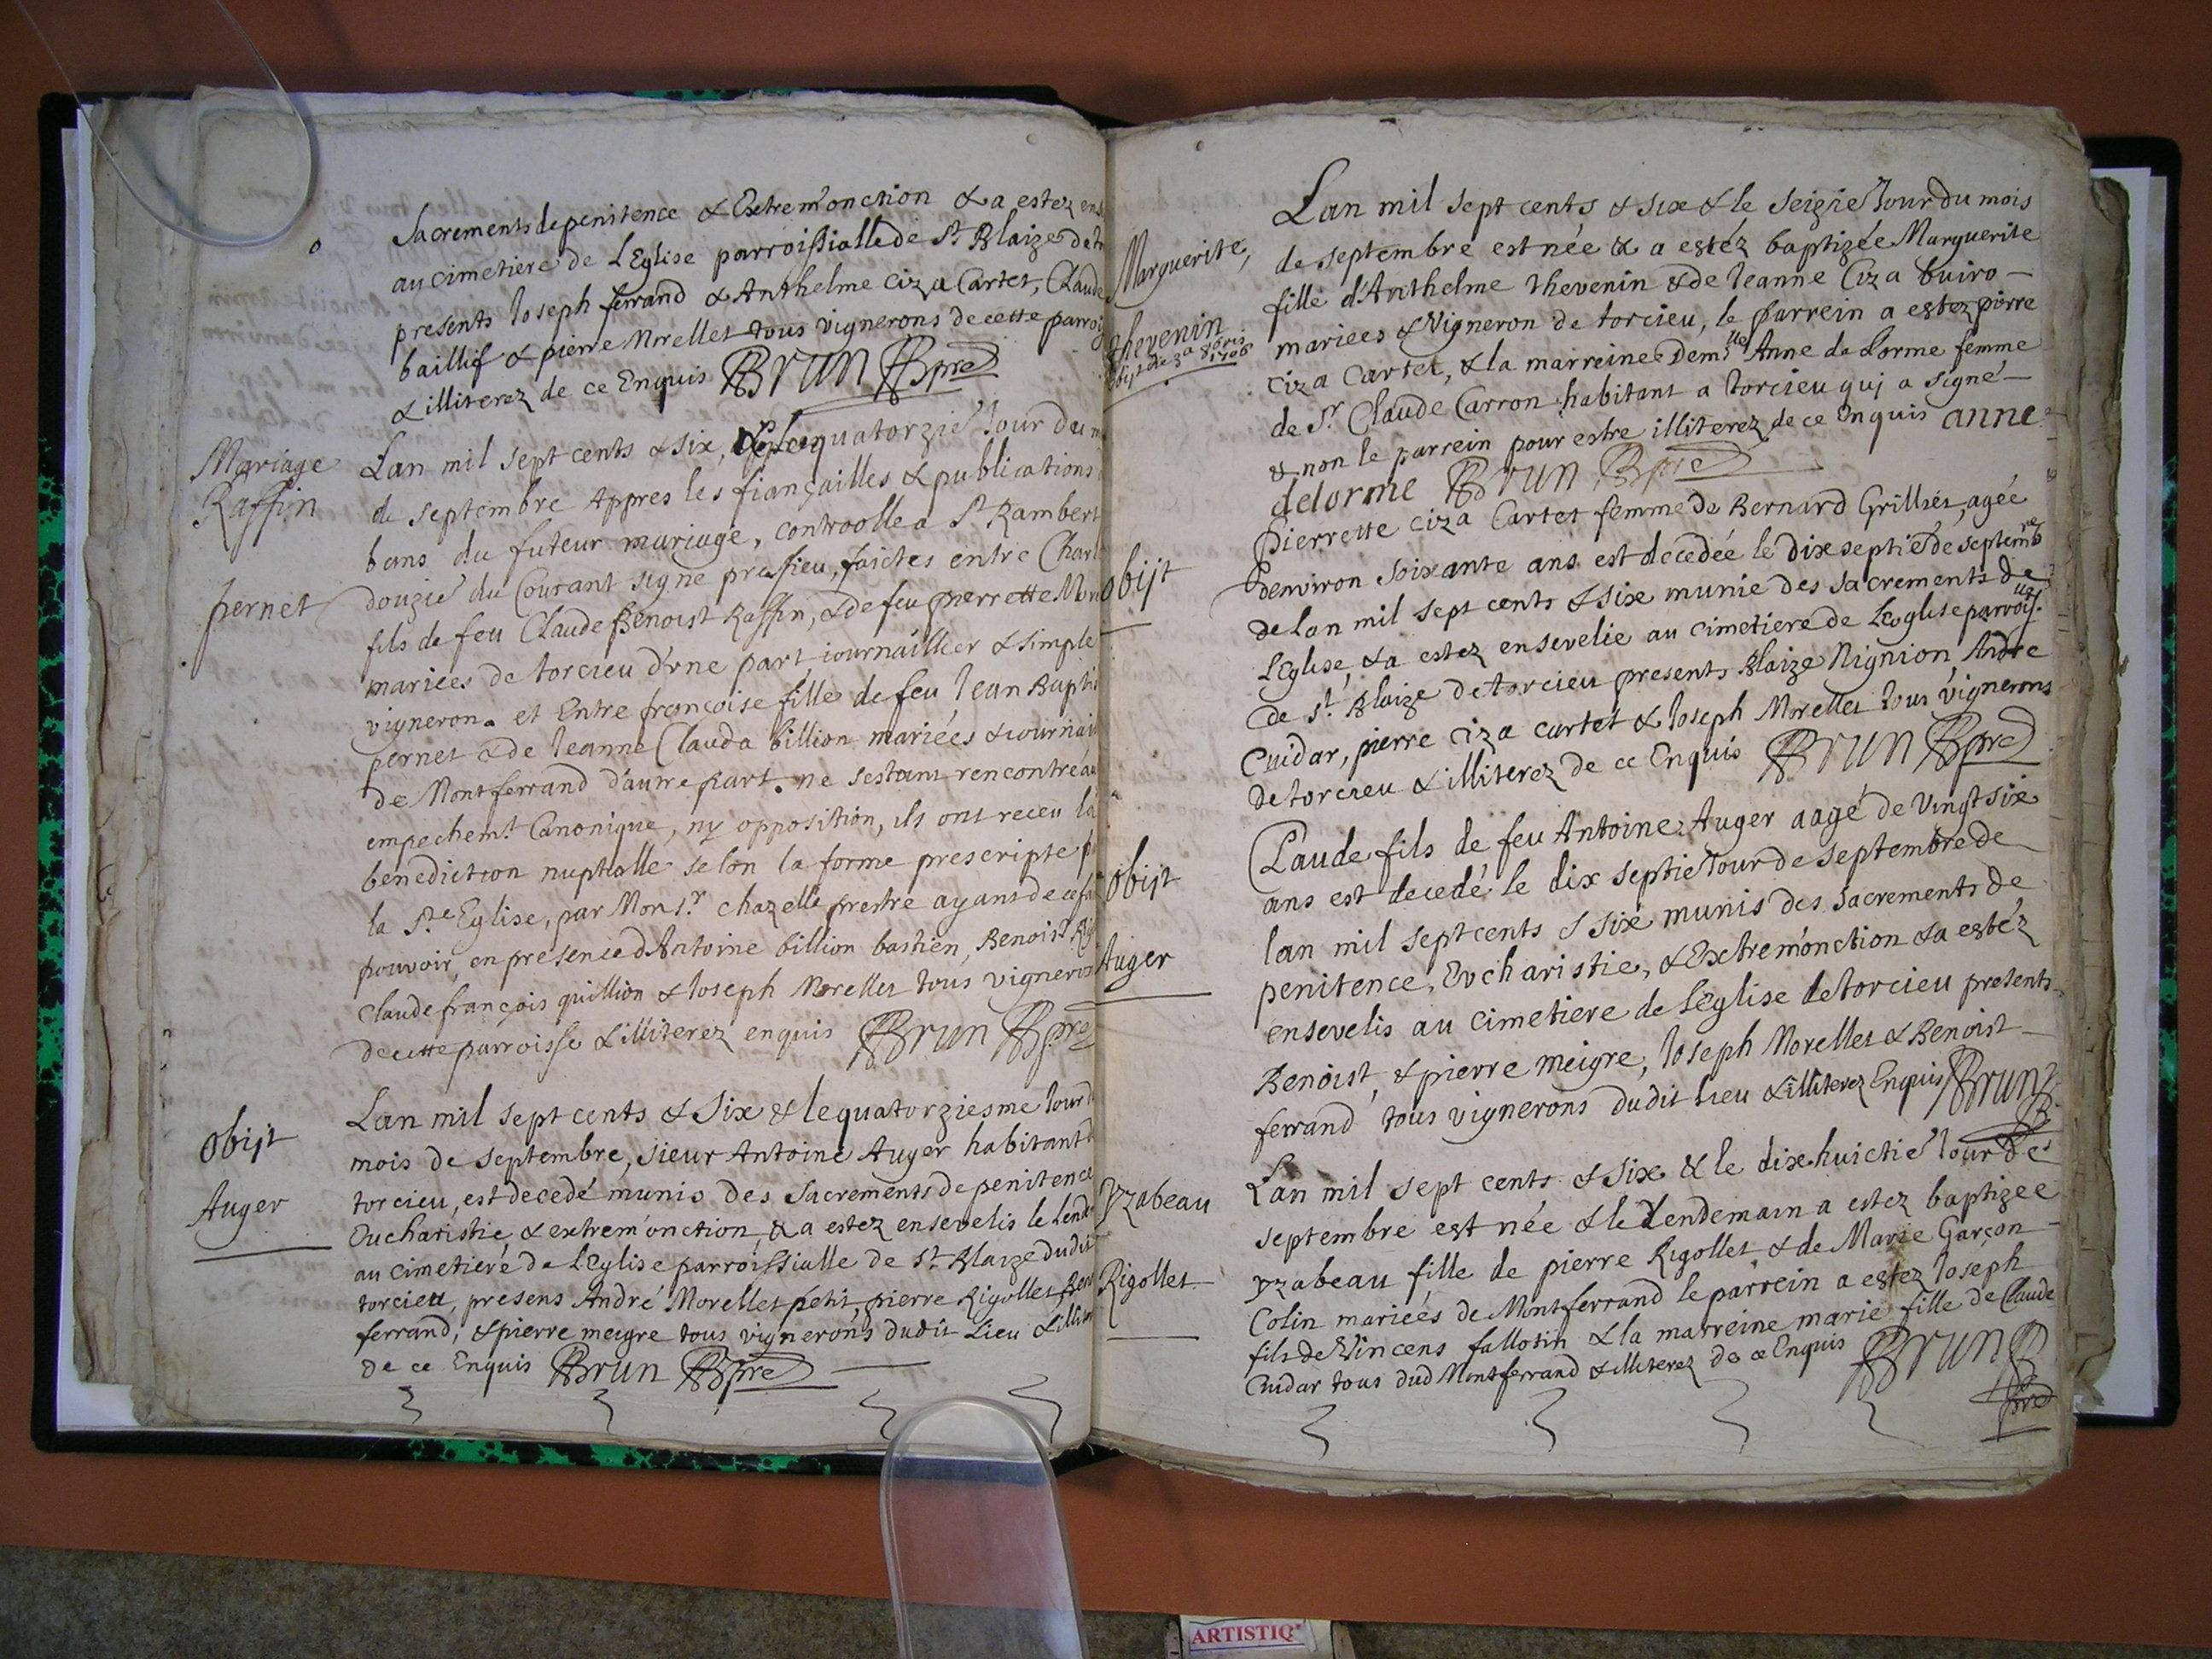 Sacrements de penitence & Extrem'onction & a estez ens
au cimetiere de L'Eglise parroissialle de St Blaize de to
presents Ioseph ferrand & Anthelme Ciza Cartet, Claude
baillif & pierre Morellet tous vignerons de cette parroi
& illiterez de ce Enquis BRUN Bpre
Mariage
Raffin
pernet
Lan mil sept cents & six, & le quatorzie Iour du m
de septembre Appres les fiançailles & publications
bans du futeur mariage, controolle a St Rambert
douzie du Courant signe pressieu, faictes entre Charl
fils de feu Claude Benoist Raffin, & de feu pierrette Mor
mariees de torcieu d'vne part iournaillier & simple
vigneron. et Entre françoise fille de feu Iean Baptis
pernet & de Ieanne Clauda billion mariées & iournai
de Montferrand d'autre part. ne sestant rencontré au
empechemt Canonique, ny opposition, ils ont receu la
benediction nuptialle selon la forme prescripte p
la Ste Eglise, par Monsr chazelle prestre ayant de ce fa
pouvoir, en presence d'Antoine billion bastien, Benoist Rig
Claude françois quillion & Ioseph Morellet tous vigneron
de cette parroisse & illiterez enquis BRUN Bpre
Obijt
Auger
Lan mil sept cents & six & le quatorziesme Iour d
mois de septembre, sieur Antoine Auger habitant d
torcieu, est decedé munis des Sacrements de penitence
Eucharistie, & extrem'onction, & a estez ensevelis le lend
au cimetiere de L'Eglise parroissialle de St Blaize dudit
torcieu, presens André Morellet petit, pierre Rigollet, Ben
ferrand, & pierre meigre tous vignerons dudit Lieu & illit
de ce Enquis BRUN Bpre
Marguerite,
thevenin
obijt die 3a 8bris
1706
Lan mil sept cents & six & le seizie Iour du mois
de septembre est née & a estéz baptizée Marguerite
fille d'Anthelme thevenin & de Ieanne Ciza buiro
mariees & Vigneron de torcieu, le parrein a estez pierre
Ciza Cartet, & la marreine Demlle Anne de Lorme femme
de Sr Claude Carron habitant a torcieu qui a signé
& non le parrein pour estre illiterez de ce Enquis anne
delorme BRUN Bpre
Obijt
Pierrette Ciza Cartet femme de Bernard Grilliet, agée
d'environ soixante ans est decedée le dix septié de septembre
de Lan mil sept cents & six munie des Sacrements de
L'Eglise, & a estez ensevelie au cimetiere de L'eglise parroislle
de St Blaize de torcieu presents Blaize Nignion, Andre
Cuidar, pierre Ciza Cartet & Ioseph Morellet tous vignerons
de torcieu & illiterez de ce Enquis BRUN Bpre
Obijt
Auger
Claude fils de feu Antoine Auger aagé de Vingt six
ans est decedé le dix septie Iour de septembre de
lan mil sept cents & six munis des Sacrements de
penitence, Evcharistie, & Extrem'onction & a estéz
ensevelis au cimetiere de l'Eglise de torcieu presents
Benoist, & pierre meigre, Ioseph Morellet & Benoist
ferrand tous vignerons dudit lieu & illiterez Enquis BRUN
B
Yzabeau
Rigollet
Lan mil sept cents & six & le dix huictié Iour de
septembre est née & le Lendemain a estez baptizee
yzabeau fille de pierre Rigollet & de Marie Garçon
Colin mariées de Montferrand le parrein a estez Ioseph
fils de Vincens fallotin & la marreine marie fille de Claude
Cuidar tous dud Montferrand & illiterez de ce Enquis BRUN B
pre
ARTISTIQ